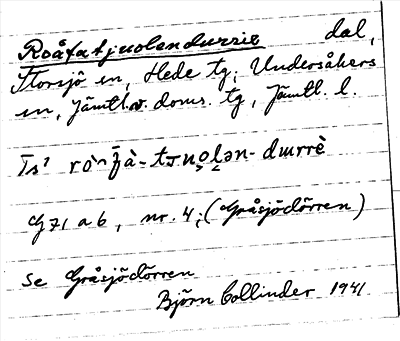 Roåfatjuolendurrie dal,
Storsjö sn, Hede tg; Undersåkers
sn, Jämtl. v. doms. tg, Jämtl. l.
dɯrrè
G 71 a b, nr. 4; (Gråsjödörren)
Se Gråsjödörren
Björn Collinder 1941